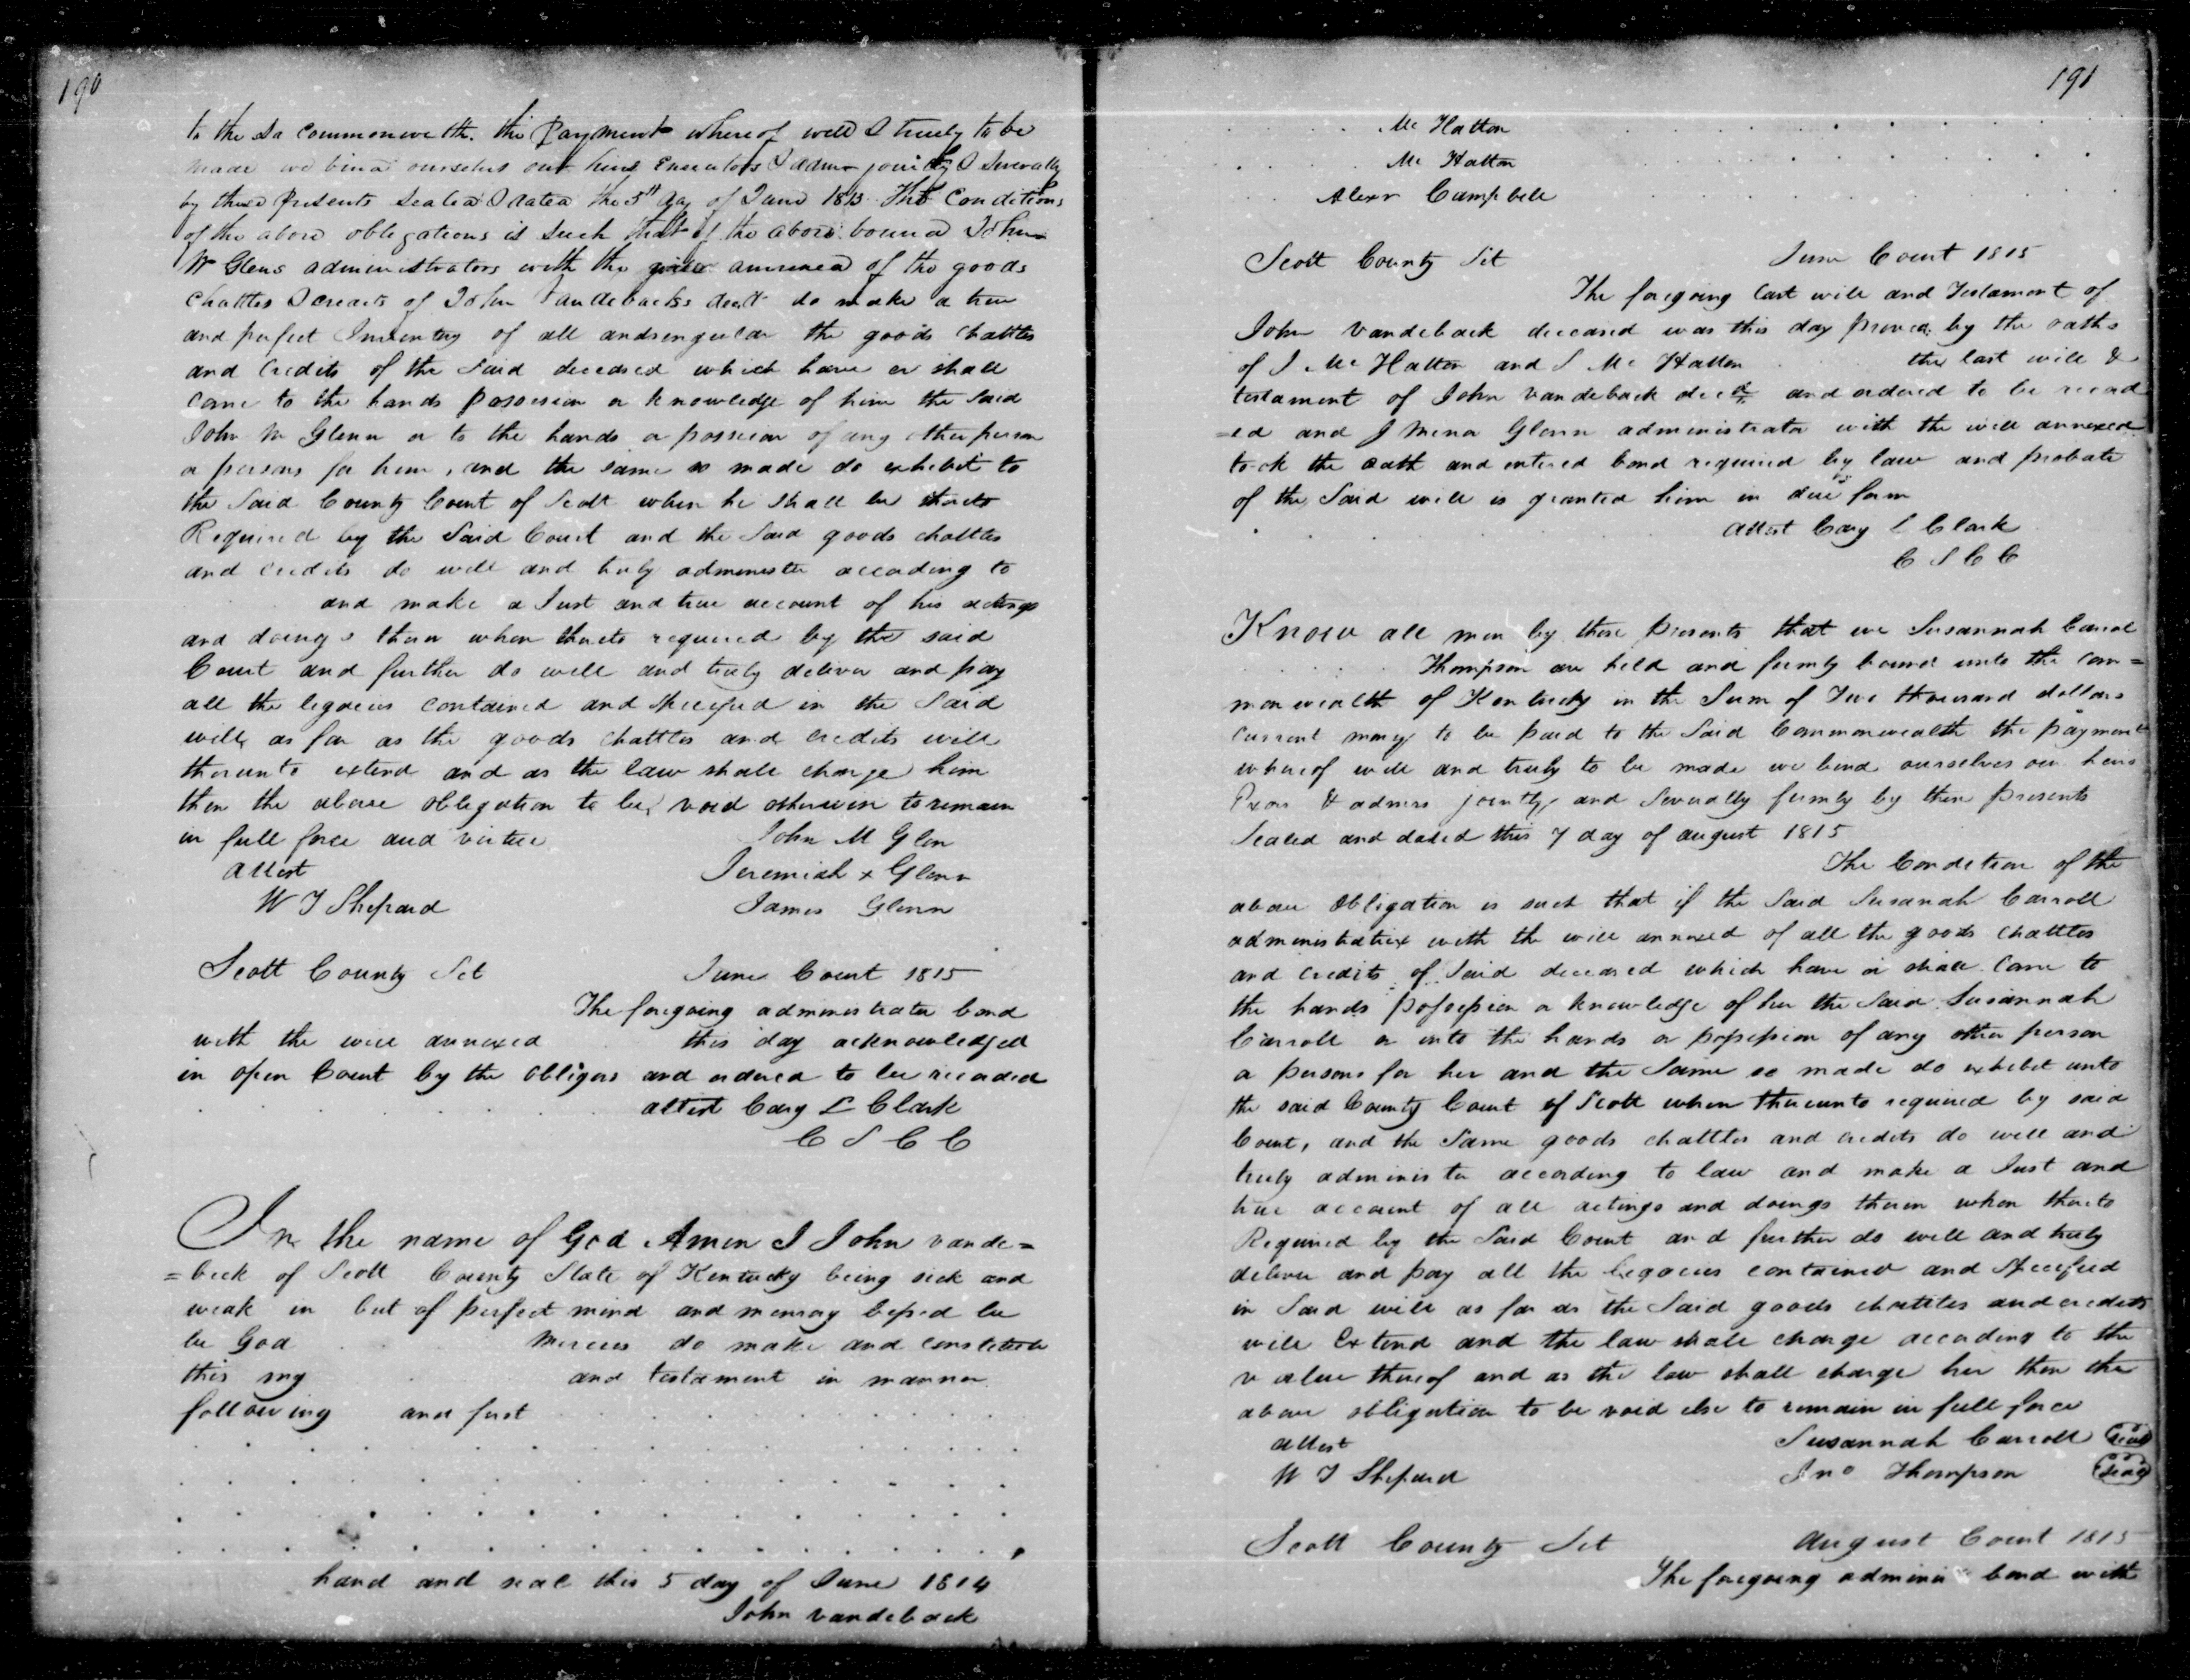 190
to the sd commonwe lth. the Payment whereof well & truely to be
made we bind ourselves our heirs Executors & admrs jointly & Severally
by these presents Sealed & dated the 5th day of June 1815 The Conditions
of the above obligations is Such that if the above bound John
M Glens administrators with the will annexed of the goods
Chattles & credits of John Vandebacks decd do make a true
and perfect Inventory of all and singular the goods Chattles
and Credits of the Said deceased which have or shall
come to the hands possession or knowledge of him the Said
John M Glenn or to the hands or possession of any other person
or persons for him, and the same so made do exhibit to
the Said County Court of Scott when he Shall be thereto
Required by the Said Court and the Said goods chattles
and credits do well and truly administer according to
and make a Just and true account of his actings
and doings therein when thereto required by the said
Court and further do well and truly deliver and pay
all the legacies contained and Specified in the Said
will, as far as the goods chattles and credits will
thereunto extend and as the law shall charge him
then the above obligation to be void otherwise to remain
in full force and virtue John M Glen
attest Jeremiah x Glenn
W T Shepard James Glenn
Scott County Sct June Court 1815
The foregoing administrator bond
with the will annexed this day acknowledged
in open Court by the obligors and ordered to be recorded
attest Cary L Clark
C S C C
In the name of God Amen I John vande=
=beck of Scott County State of Kentucky being sick and
weak in but of perfect mind and memory be
be God mercies do make and constitute
this my and testament in manner
following and first
hand and seal this 5 day of June 1814
John vandeback
191
Mc Hatton
Mc Hatton
Alexr Campbell
Scott County Sct June Court 1815
The foregoing last will and Testament of
John Vandeback deceased was this day proved by the oaths
of J Mc Hatton and S Mc Hatton the last will &
testament of John Vandeback decd and ordered to be record
=ed and J Glenn administrator with the will annexed
took the oath and entered bond required by law and probate
of the Said will is granted him in due form
attest Cary L Clark
C S C C
Know all men by these presents that we Susannah Carrol
Thompson are held and firmly bound unto the com=
monwealth of Kentucky in the Sum of Two thousand dollars
current money to be paid to the Said Commonwealth the payment
whereof well and truly to be made we bend ourselves our heirs
Exors & admrs jointly and Severally firmly by these presents
Sealed and dated this 7 day of august 1815
The Condition of the
above Obligation is such that if the Said Susanah Carroll
administratrix with the will annexed of all the goods chattles
and credits of Said deceased which have or shall come to
the hands possession or knowledge of her the Said Susannah
Carroll or into the hands or possession of any other person
or persons for her and the Same so made do exhibit unto
the said County Court of Scott when thereunto required by said
Court, and the Same goods chattles and credits do well and
truly administer according to law and make a Just and
true account of all actings and doings therein when thereto
Required by the Said Court and further do well and truly
deliver and pay all the legacies contained and Specified
in Said will as far as the Said goods chattles and credits
will Extend and the law shall charge according to the
value thereof and as the law shall charge her then the
above obligation to be void else to remain in full force
attest Susannah Carroll seal
W T Shepard Jno Thompson seal
Scott County Sct August Court 1815
The foregoing adminis bond with